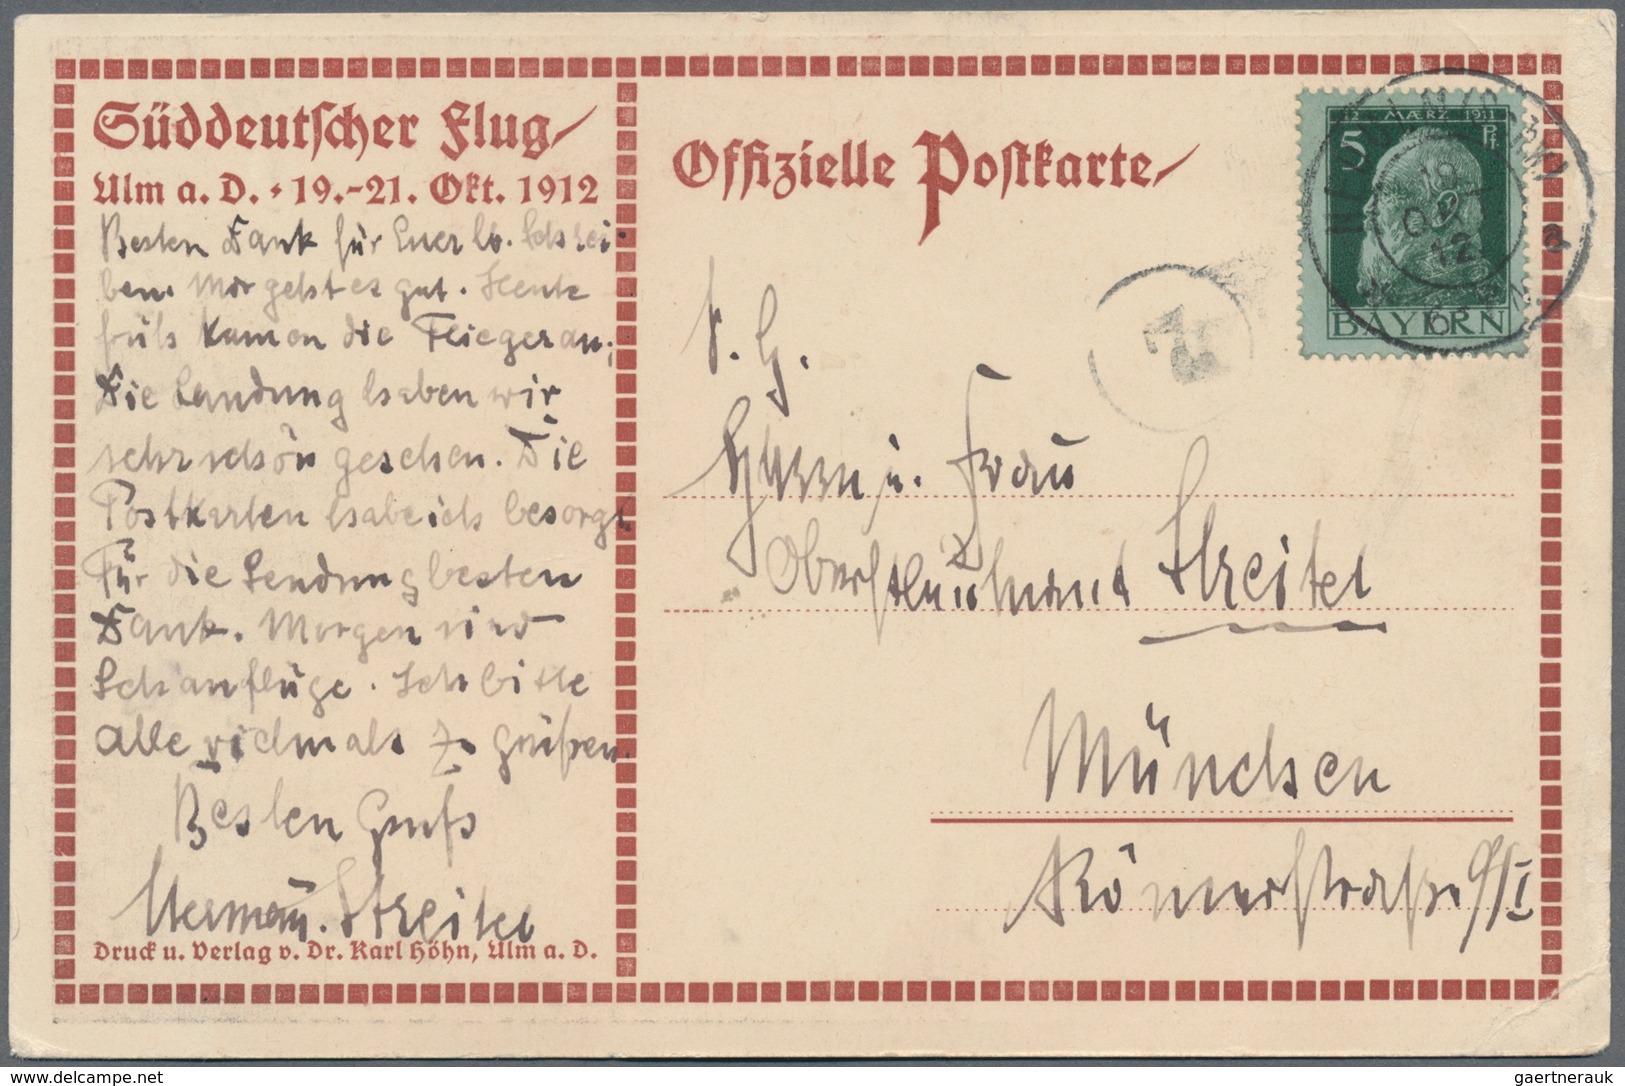 Süddeutscher Flug
Ulm a. D. 19.-21. Okt. 1912
Besten Dank für Euer lb. Schrei-
ben. Mir geht es gut. Heute
früh kamen die Flieger an;
Die Landung haben wir
sehr schön gesehen. Die
Postkarten habe ich besorgt
Für die Sendung besten
Dank. Morgen sind
Schauflüge. Ich bitte
alle vielmals zu grüßen.
Besten Gruß
Hermann Streitel
Druck u. Verlag v. Dr. Karl Höhn, Ulm a. D.
Offizielle Postkarte
12 MÆRZ 1911
5 Pf.
BAYERN
NEU-ULM
19
OKT
12
S. H.
Herrn u. Frau
Oberstleutnant Streitel
München
Römerstraße 9/I
www.delcampe.net
gaertnerauk